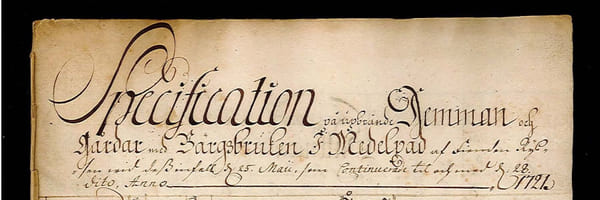 Specification på upbrände Hemman och
Gårdar med Bärgsbruken I Medelpad af Fienden Rys-
sen vid deß infall d. 25. Maii, som Continuerade til och med d. 28.
dito, Anno 1721.